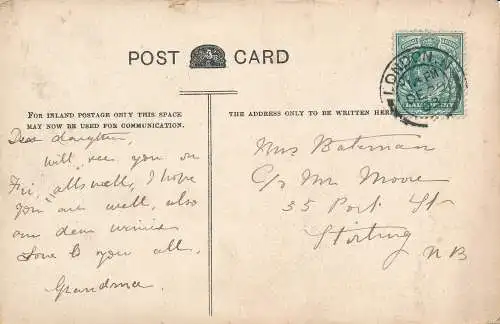 POST CARD
FOR INLAND POSTAGE ONLY THIS SPACE
MAY NOW BE USED FOR COMMUNICATION.
THE ADDRESS ONLY TO BE WRITTEN HERE
LONDON. N
PM
HALFPENNY
Dear daughter,
will see you on
Fri, alls well, I hope
you are well, also
our dear
love to you all.
Grandma
Mrs Bateman
C/o Mr Moore
35 Port St
Stirling
NB